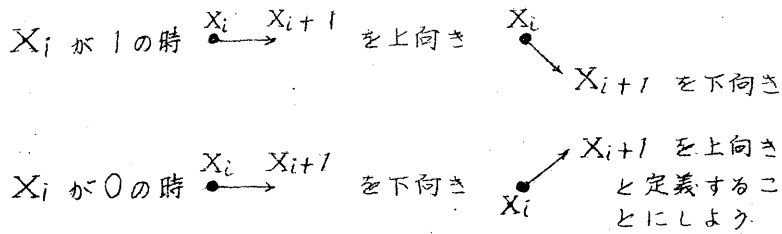 Xi が 1 の時 Xi Xi+1 を上向き Xi Xi+1 を下向き
Xi が 0 の時 Xi Xi+1 を下向き Xi Xi+1 を上向き
と定義するこ
とにしよう.